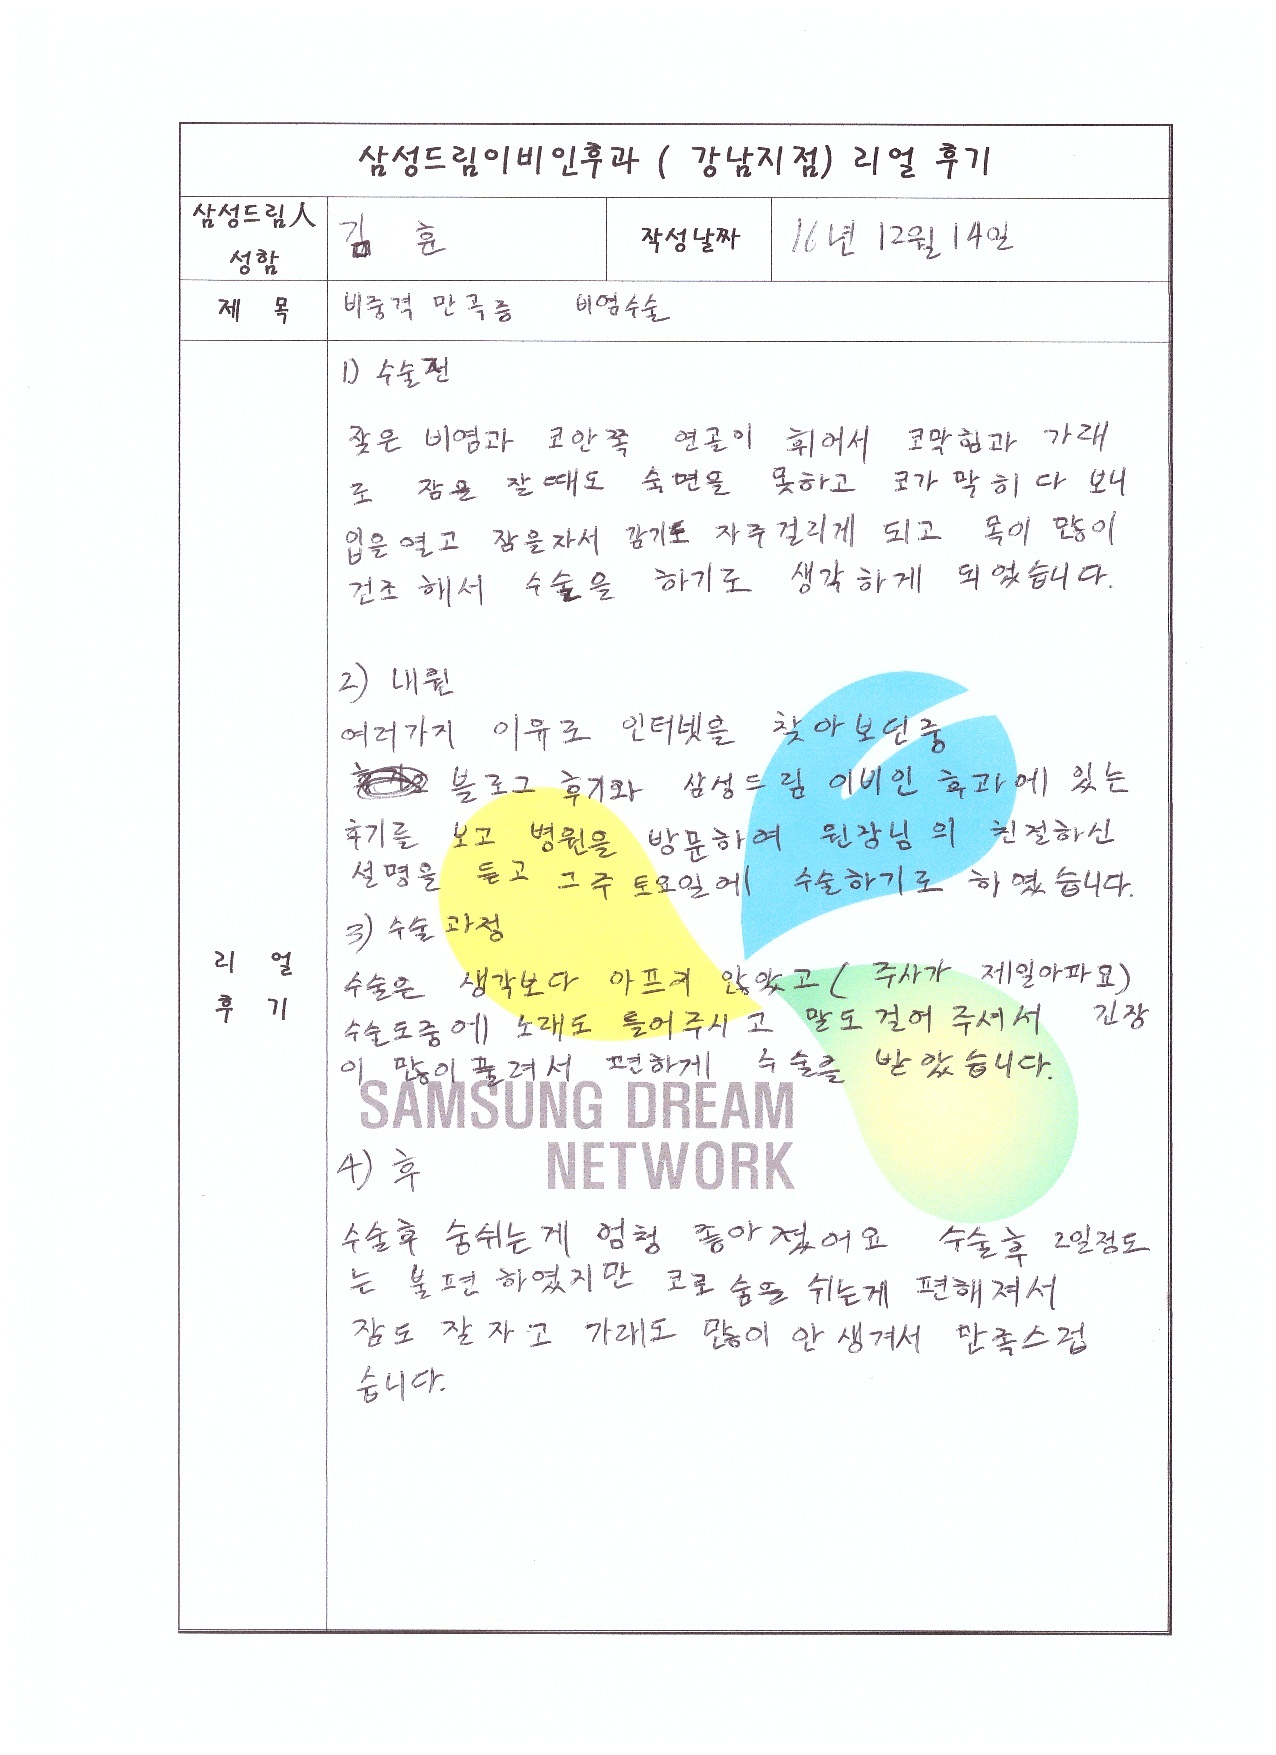 삼성드림이비인후과 ( 강남지점) 리얼 후기
삼성드림人 성함
김 훈
작성날짜
16년 12월 14일
제 목
비중격 만곡증 비염수술
리 얼 후 기
1) 수술전
잦은 비염과 코안쪽 연골이 휘어서 코막힘과 가래
로 잠을 잘때도 숙면을 못하고 코가 막히다 보니
입을 열고 잠을자서 감기도 자주걸리게 되고 목이 많이
건조 해서 수술을 하기로 생각하게 되었습니다.
2) 내원
여러가지 이유로 인터넷을 찾아보던중
블로그 후기와 삼성드림 이비인 후과에 있는
후기를 보고 병원을 방문하여 원장님의 친절하신
설명을 듣고 그주 토요일에 수술하기로 하였습니다.
3) 수술과정
수술은 생각보다 아프지 않았고 ( 주사가 제일아파요)
수술도중에 노래도 틀어주시고 말도 걸어 주셔서 긴장
이 많이 풀려서 편하게 수술을 받았습니다.
SAMSUNG DREAM
NETWORK
4) 후
수술후 숨쉬는게 엄청 좋아졌어요 수술후 2일정도
는 불편 하였지만 코로 숨을 쉬는게 편해져서
잠도 잘 자고 가래도 많이 안 생겨서 만족스럽
습니다.